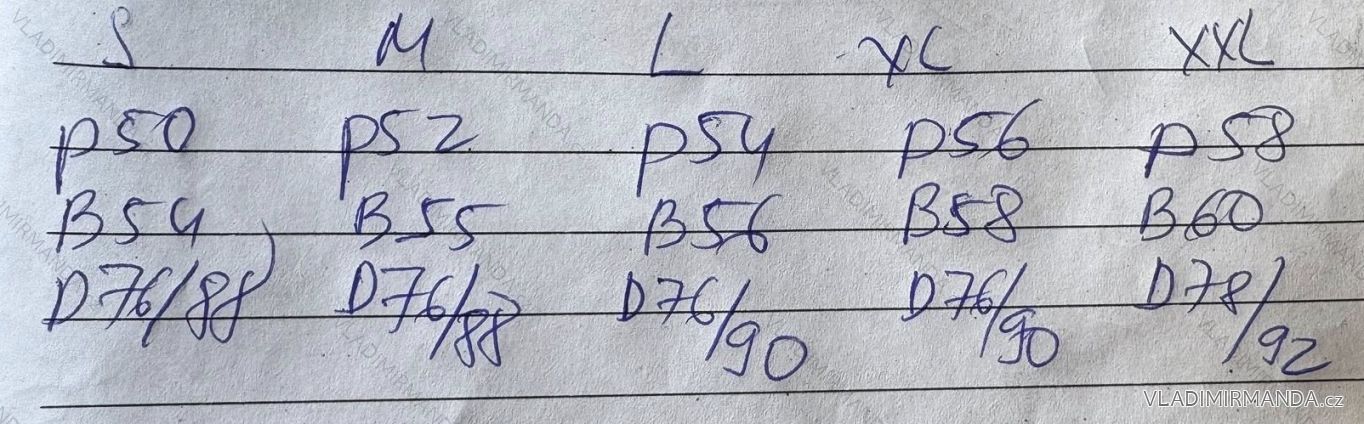 S M L XL XXL
p50 p52 p54 p56 p58
B54 B55 B56 B58 B60
D76/88 D76/88 D76/90 D76/90 D78/92
VLADIMIRMANDA.cz